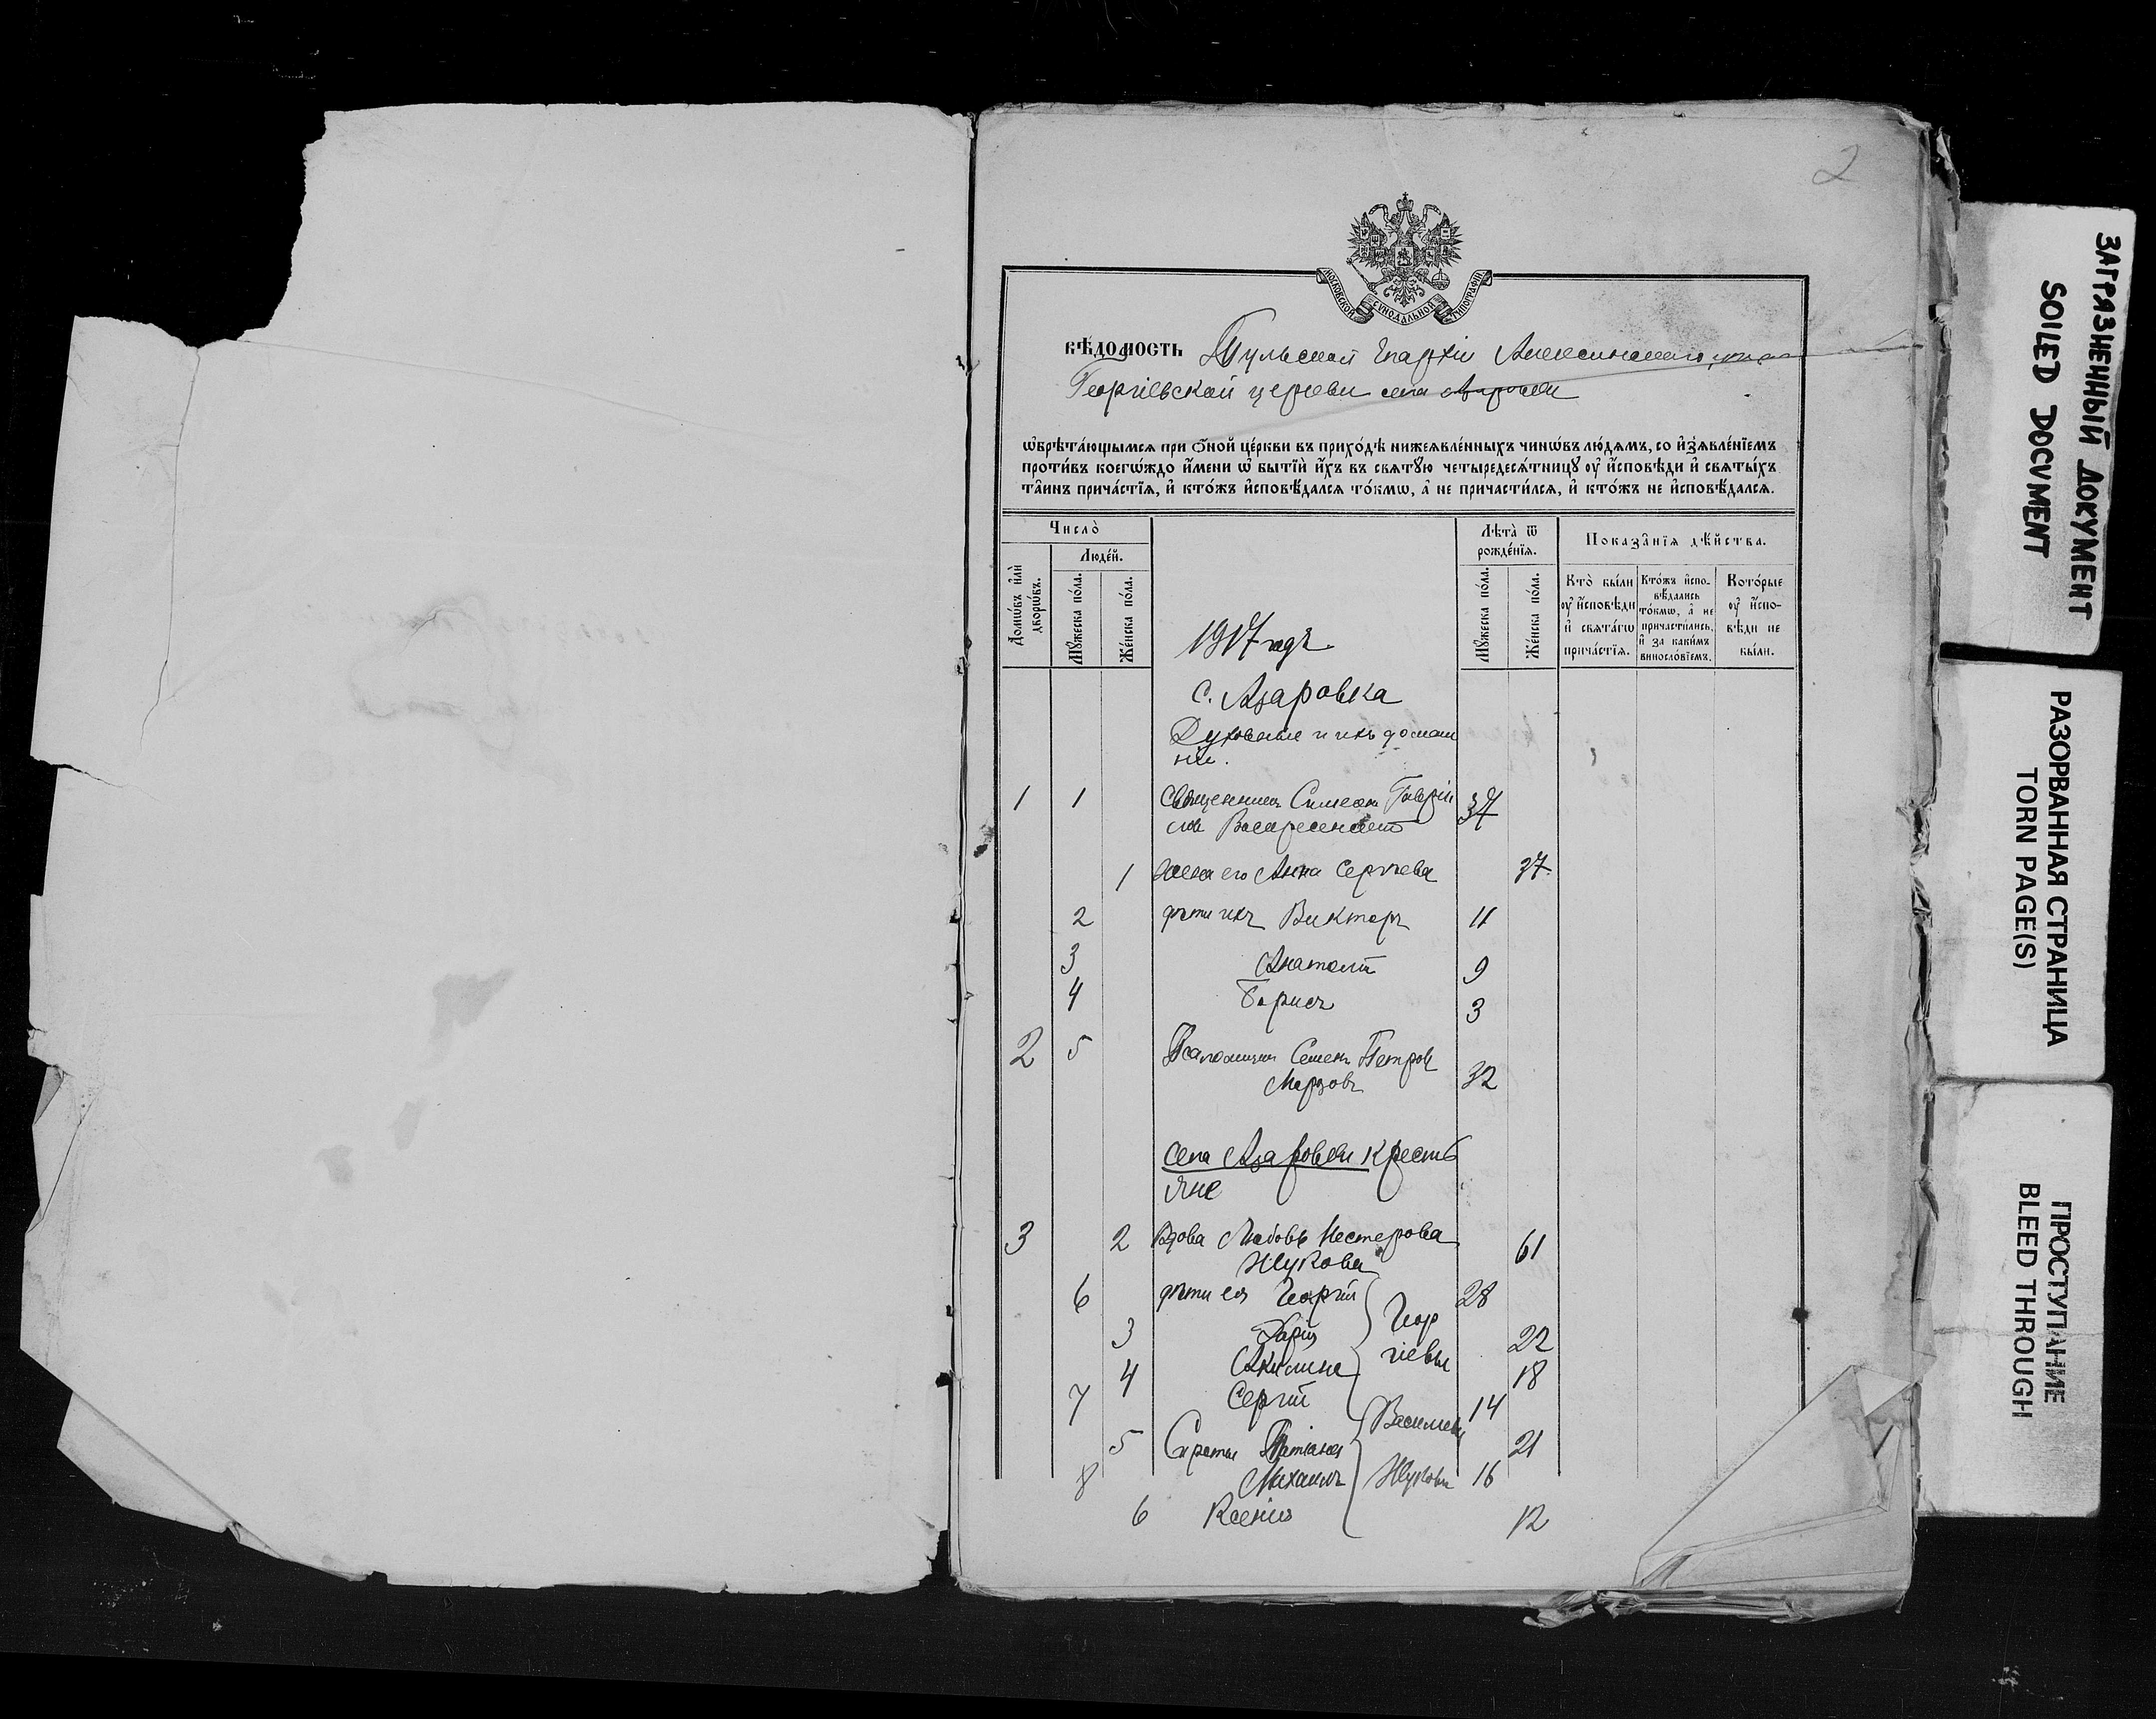 2
МОСКОВСКОЙ СѴНОДАЛЬНОЙ ТИПОГРАФІИ
ВѢДОМОСТЬ Тульской Епархіи Алексинскаго уѣзда
Георгіевской церкви села Азаровки
ѡ҆брѣта́ющымся при ѻ҆́ной це́ркви въ прихо́дѣ нижеявле́нныхъ чинѡ́въ лю́дямъ, со и҆з̾явле́нїемъ
проти́въ коегѡ́ждо и҆́мени ѡ҆ бытїѝ и҆́хъ въ святꙋ́ю четыредеся́тницꙋ ᲂу҆ и҆́сповѣди и҆ святы́хъ
та̑инъ прича́стїя, и҆ кто́жъ и҆сповѣ́дался то́кмѡ, а҆ не причасти́лся, и҆ кто́жъ не и҆сповѣ́дался.
Число̀
Люде́й.
Домѡ́въ и҆лѝ дворѡ́въ.
Мꙋ́жеска по́ла.
Же́нска по́ла.
1917 годъ
Лѣта̀ ѿ рожде́нїя.
Мꙋ́жеска по́ла.
Же́нска по́ла.
Показа̑нїя дѣ́йства.
Кто̀ бы́ли ᲂу҆ и҆́сповѣди и҆ свята́гѡ прича́стїя.
Кто́жъ и҆спо-вѣ́дались то́кмѡ, а҆ не причасти́лись, и҆ за каки́мъ виносло́вїемъ.
Кото́рые ᲂу҆ и҆́спо-вѣди не бы́ли.
с. Азаровка
Духовные и ихъ домаш
ніе.
1 1 Священникъ Симеонъ Гавріи
ловъ Воскресенскій 37
1 жена его Анна Сергіева 37
2 дѣти ихъ Викторъ 11
3 Анатолій 9
4 Борисъ 3
2 5 Псаломщикъ Семенъ Петровъ
Морозовъ 32
села Азаровки кресть
яне
3 2 Вдова Любовь Нестерова 61
Жукова
6 дѣти ея Георгій 28
Геор
3 Дарія 22
гіевы
4 Акилина 18
7 Сергій 14
Васильевы
5 Сироты Татіана 21
8 Михаилъ Жуковы 16
6 Ксенія 12
ЗАГРЯЗНЕННЫЙ ДОКУМЕНТ
SOILED DOCUMENT
РАЗОРВАННАЯ СТРАНИЦА
TORN PAGE(S)
ПРОСТУПАНИЕ
BLEED THROUGH